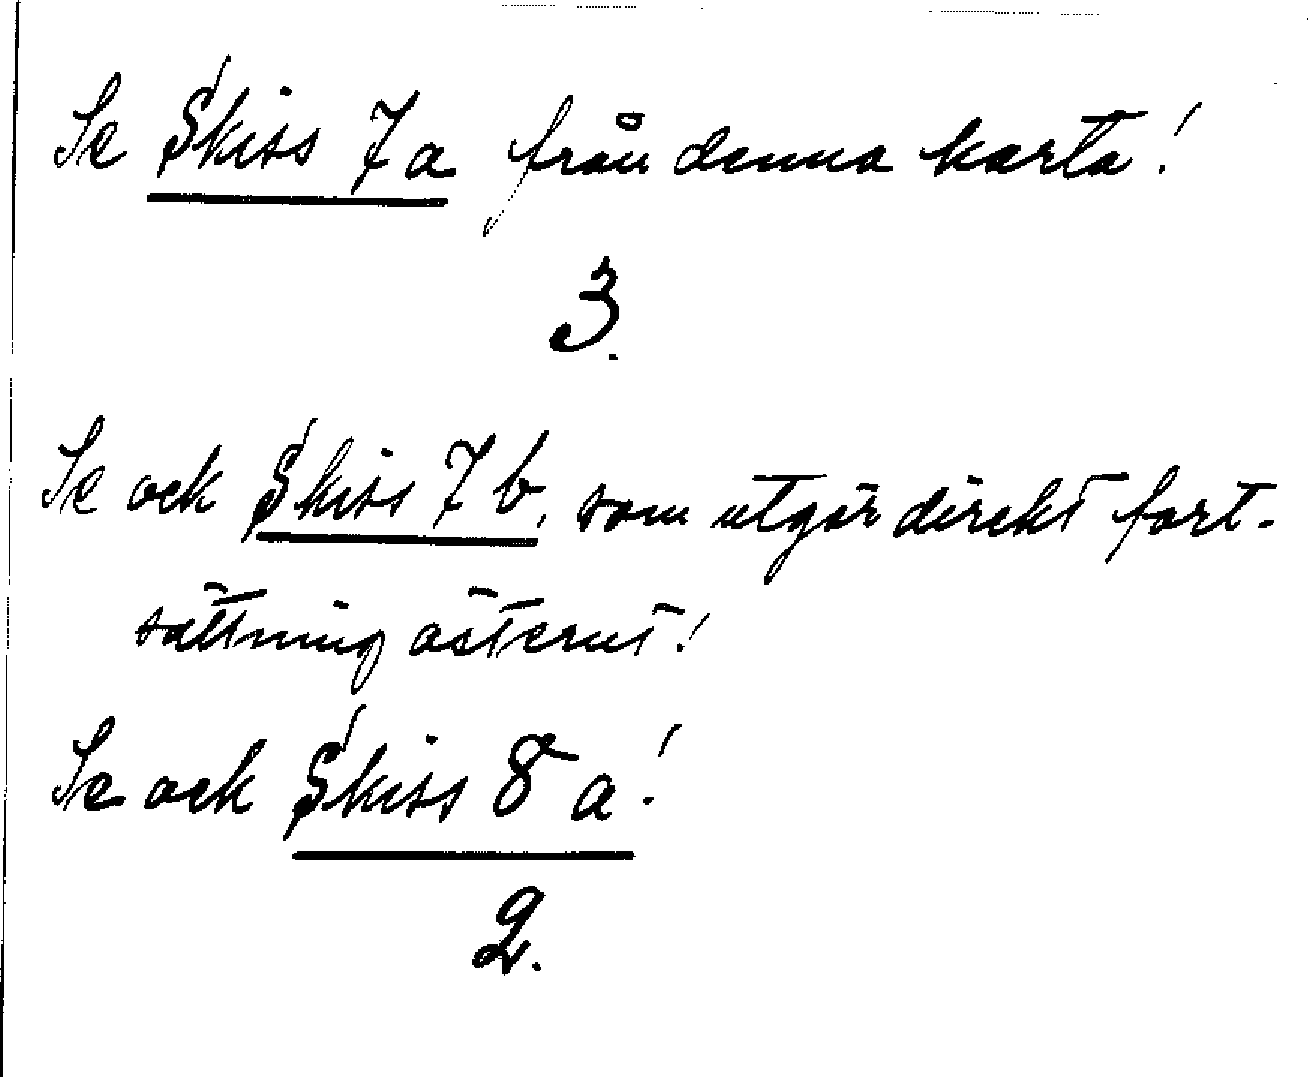 Se Skiss 7a från denna karta!
3.
Se ock Skiss 7b, som utgör direkt fort-
sättning österut!
Se ock Skiss 8a!
2.